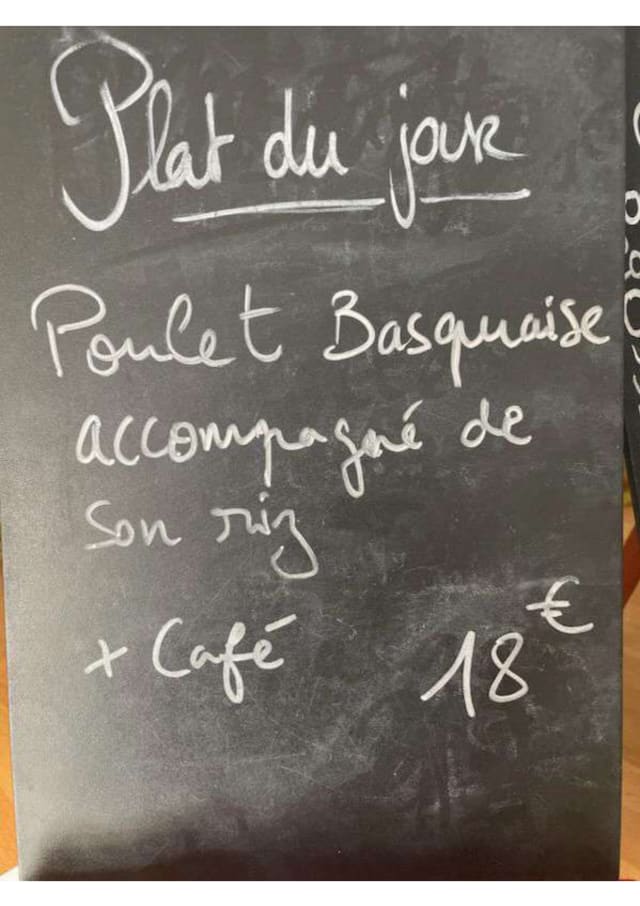 Plat du jour
Poulet Basquaise
accompagné de
son riz
+ Café 18€